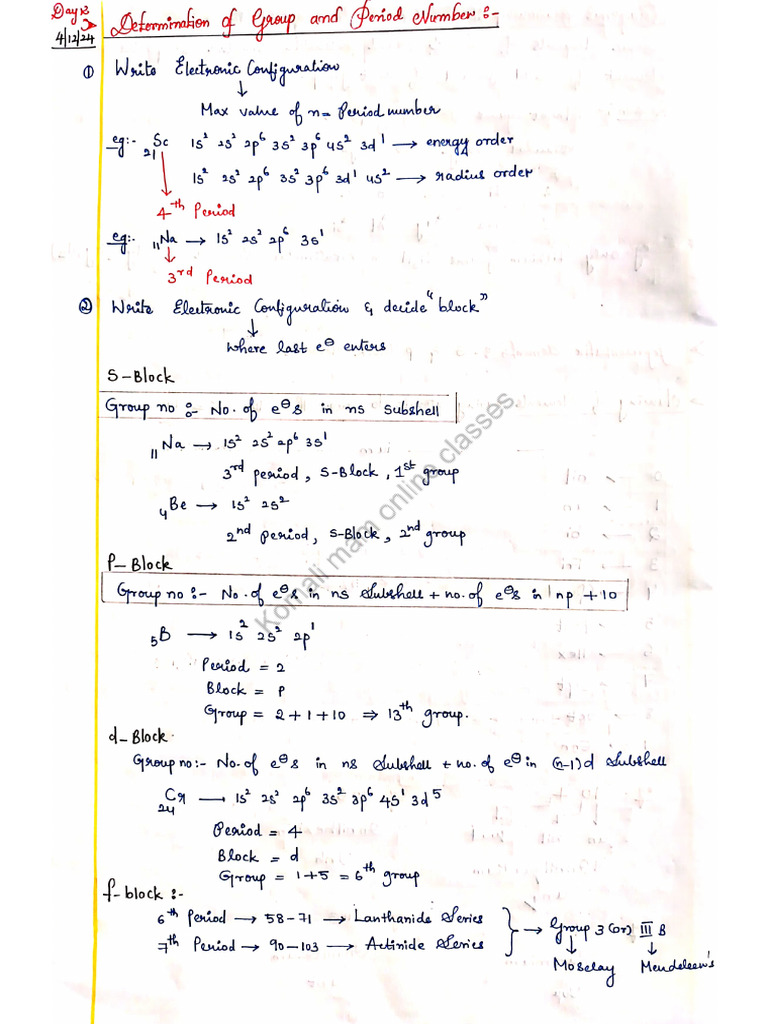 Day 13
4/12/24
Determination of Group and Period Number :-
① Write Electronic Configuration
↓
Max value of n = Period number
eg:- ₂₁Sc 1s² 2s² 2p⁶ 3s² 3p⁶ 4s² 3d¹ → energy order
1s² 2s² 2p⁶ 3s² 3p⁶ 3d¹ 4s² → radius order
4th Period
eg:- ₁₁Na → 1s² 2s² 2p⁶ 3s¹
↓
3rd Period
② Write Electronic Configuration & decide "block"
↓
where last e⊖ enters
S-Block
Group no :- No. of e⊖s in ns subshell
₁₁Na → 1s² 2s² 2p⁶ 3s¹
3rd period, S-Block, 1st group
₄Be → 1s² 2s²
2nd period, S-Block, 2nd group
P-Block
Group no :- No. of e⊖s in ns Subshell + no. of e⊖s in np + 10
₅B → 1s² 2s² 2p¹
Period = 2
Block = P
Group = 2 + 1 + 10 ⇒ 13th group.
d-Block
Group no:- No. of e⊖s in ns Subshell + no. of e⊖ in (n-1)d Subshell
₂₄Cr → 1s² 2s² 2p⁶ 3s² 3p⁶ 4s¹ 3d⁵
Period = 4
Block = d
Group = 1+5 = 6th group
f-block :-
6th Period → 58-71 → Lanthanide Series
7th Period → 90-103 → Actinide Series
} → Group 3 (or) III B
↓ ↓
Moselay Mendeleev's
Komali mam online classes.